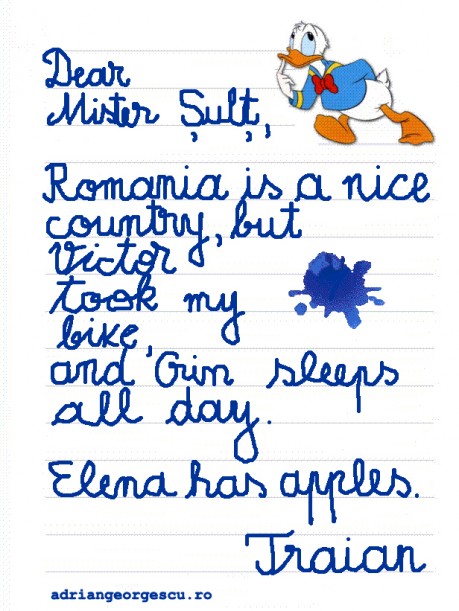 Dear
Mister Șulț,
Romania is a nice
country, but
Victor
took my
bike,
and Crin sleeps
all day.
Elena has apples.
Traian
adriangeorgescu.ro